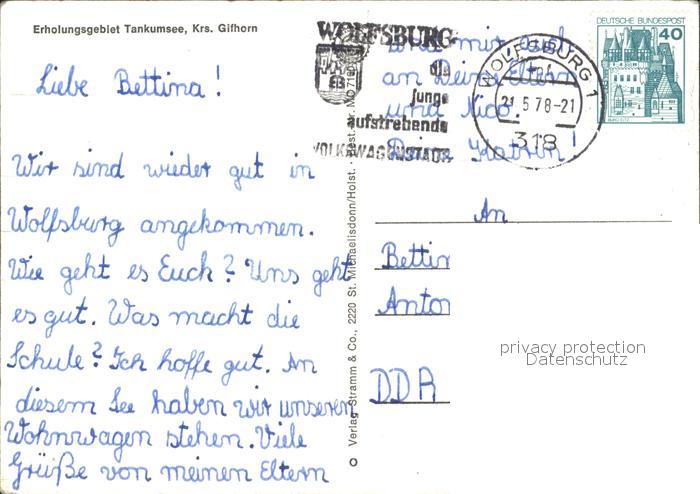 Erholungsgebiet Tankumsee, Krs. Gifhorn
Liebe Bettina!
Wir sind wieder gut in
Wolfsburg angekommen.
Wie geht es Euch? Uns geht
es gut. Was macht die
Schule? Ich hoffe gut. An
diesem See haben wir unseren
Wohnwagen stehen. Viele
Grüße von meinen Eltern
und mir auch
an Deine Eltern
und Nico.
Deine Katrin!
WOLFSBURG
die
junge
aufstrebende
VOLKSWAGENSTADT
WOLFSBURG 1
21.5.78-21
318
DEUTSCHE BUNDESPOST
40
BURG ELTZ
Verlag Stramm & Co., 2220 St. Michaelisdonn/Holst. · Best.-Nr.
An
Bettin
Anton
DDR
privacy protection
Datenschutz